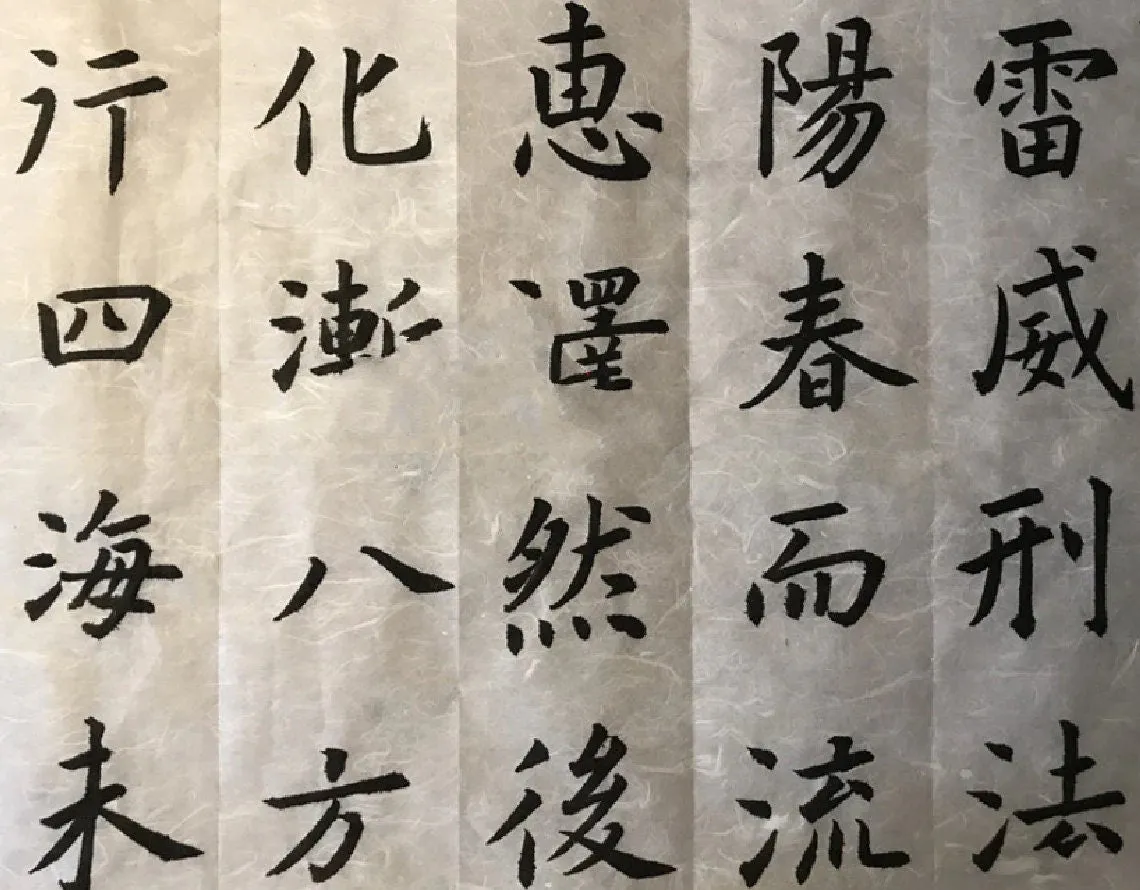 雷威刑法
陽春而流
恵澤然後
化漸八方
行四海未